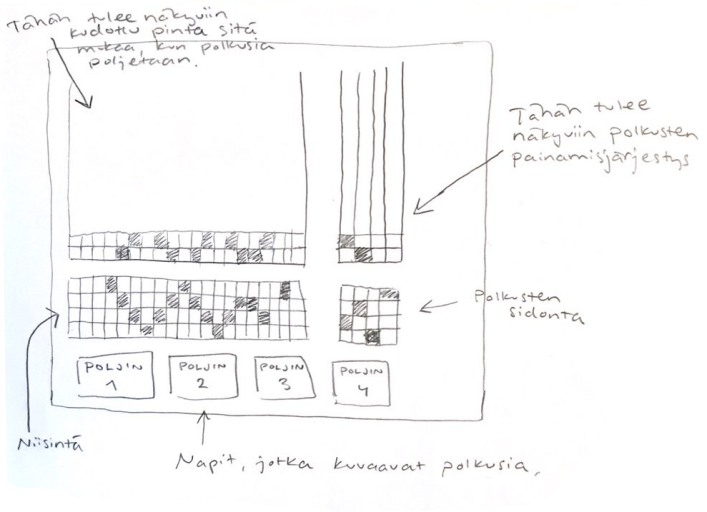 Tähän tulee näkyviin
kudottu pinta sitä
mukaa, kun polkusia
poljetaan.
Tähän tulee
näkyviin polkusten
painamisjärjestys
Polkusten
sidonta
POLJIN
1
POLJIN
2
POLJIN
3
POLJIN
4
Niisintä
Napit, jotka kuvaavat polkusia.